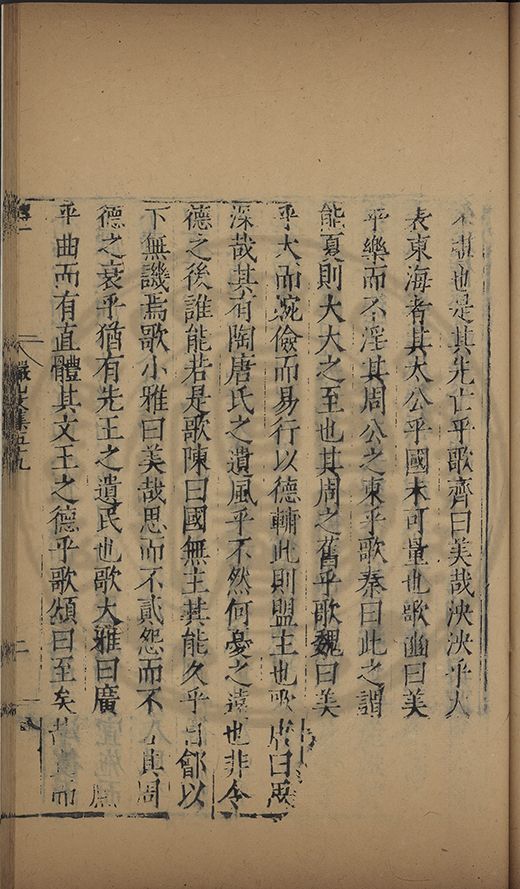 不堪也是其先亡乎歌齊曰美哉泱泱乎大
表東海者其太公乎國未可量也歌豳曰美
乎樂而不淫其周公之東乎歌秦曰此之謂
能夏則大大之至也其周之舊乎歌魏曰美
乎大而婉儉而易行以德輔此則盟主也歌唐曰思
深哉其有陶唐氏之遺風乎不然何憂之遠也非令
德之後誰能若是歌陳曰國無主其能久乎自鄶以
下無譏焉歌小雅曰美哉思而不貳怨而不言其周
德之衰乎猶有先王之遺民也歌大雅曰廣
乎曲而有直體其文王之德乎歌頌曰至矣哉直而